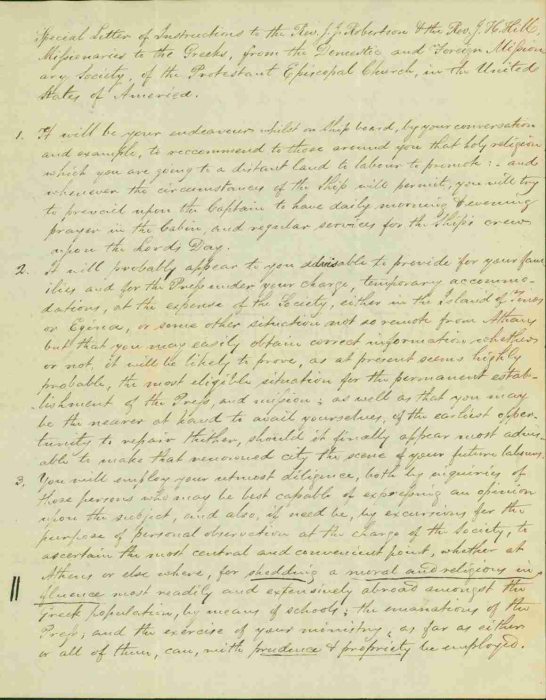 Special Letter of Instructions to the Rev. J. J. Robertson & the Rev. J. H. Hill,
Missionaries to the Greeks, from the Domestic and Foreign Mission
ary Society, of the Protestant Episcopal Church, in the United
States of America.
1. It will be your endeavour whilst on Ship board, by your conversation
and example, to reccommend to those around you that holy religion
which you are going to a distant land to labour to promote: - and
whenever the circumstances of the Ship will permit, you will try
to prevail upon the Captain to have daily morning & evening
prayer in the Cabin, and regular services for the Ship's crew
upon the Lords Day.
2. It will probably appear to you advisable to provide for your fam
ilies and for the Press under your charge, temporary accommo-
dations, at the expense of the Society, either in the Island of Tenos
or Egina, or some other situation not so remote from Athens
but that you may easily obtain correct information whether
or not, it will be likely to prove, as at present seems highly
probable, the most eligible situation for the permanent estab-
lishment of the Press, and mission; as well as that you may
be the nearer at hand to avail yourselves, of the earliest oppor-
tunity to repair thither, should it finally appear most advis-
able to make that renowned city the scene of your future labours.
3. You will employ your utmost diligence, both by inquiries of
those persons who may be best capable of expressing an opinion
upon the subject, and also, if need be, by excursions for the
purpose of personal observation at the charge of the Society, to
ascertain the most central and convenient point, whether at
Athens or else where, for shedding a moral and religious in-
fluence most readily and extensively abroad amongst the
Greek population, by means of schools; the emanations of the
Press, and the exercise of your ministry, as far as either
or all of them, can, with prudence & propriety be employed.